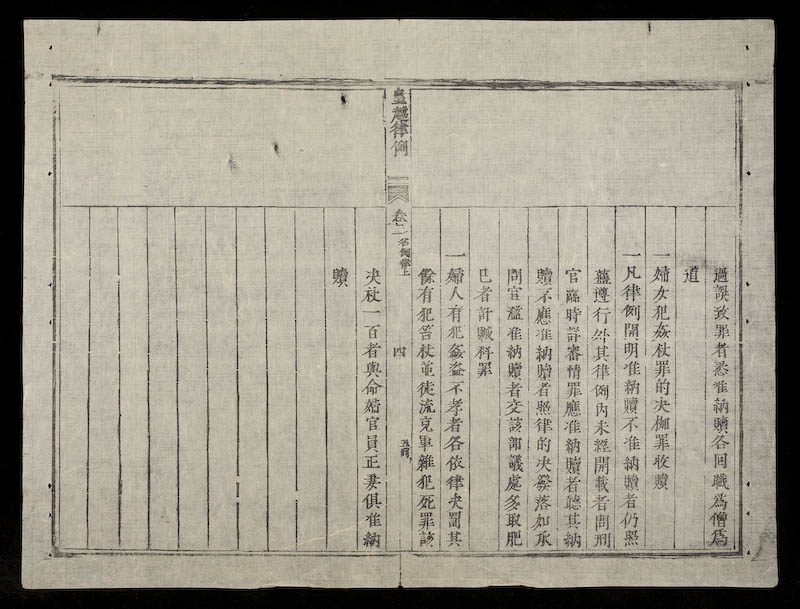 過誤致罪者悉准納贖各囘職爲僧爲
道
一婦女犯姦杖罪的决枷罪收贖
一凡律例開明准納贖不准納贖者仍照
舊遵行外其律例內未經開載者問刑
官臨時詳審情罪應准納贖者聽其納
贖不應准納贖者照律的决發落如承
問官濫准納贖者交該部議處多取肥
已者計贓科罪
一婦人有犯姦盜不孝者各依律决罰其
餘有犯笞杖並徒流充軍雜犯死罪該
皇越律例
卷二
名例律上
四
五刑
决杖一百者與命婦官員正妻俱准納
贖